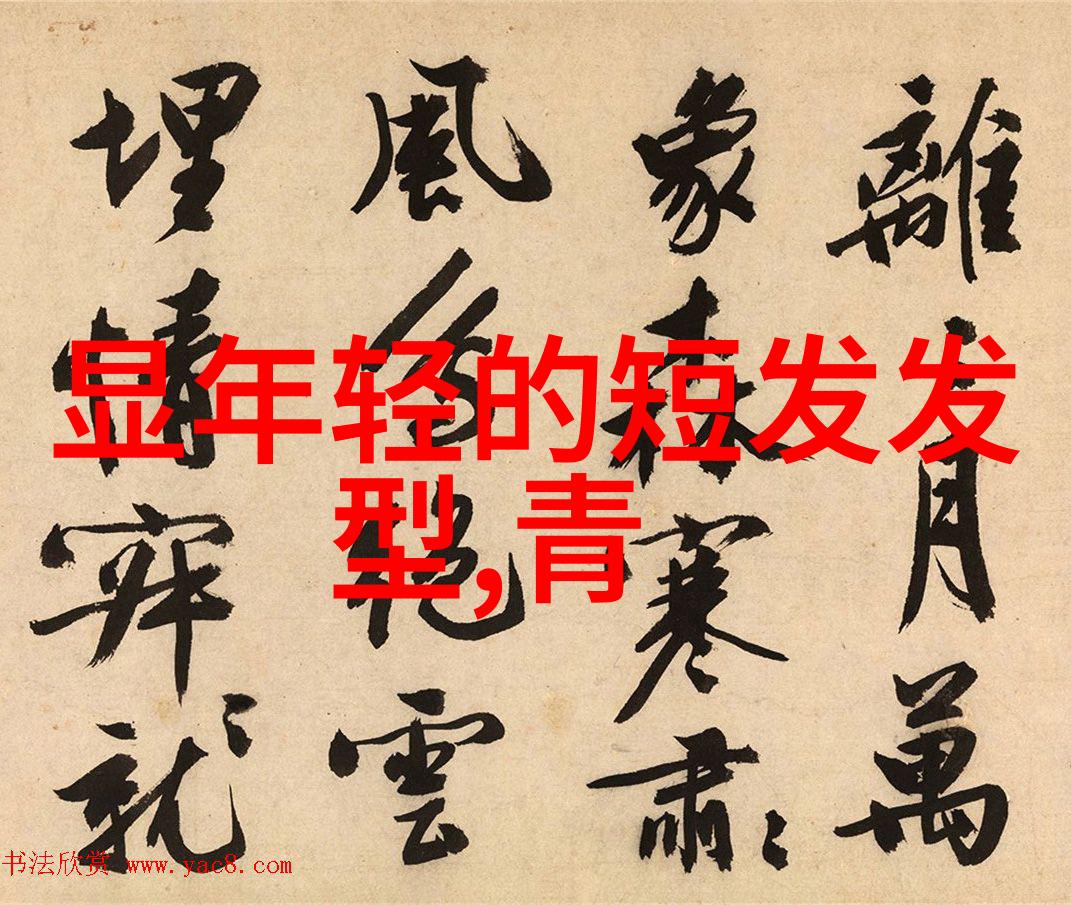 離月萬
象森寒肅
風雲
埋情
显年轻的短发发
型,青
书法欣赏 www.yac8.com